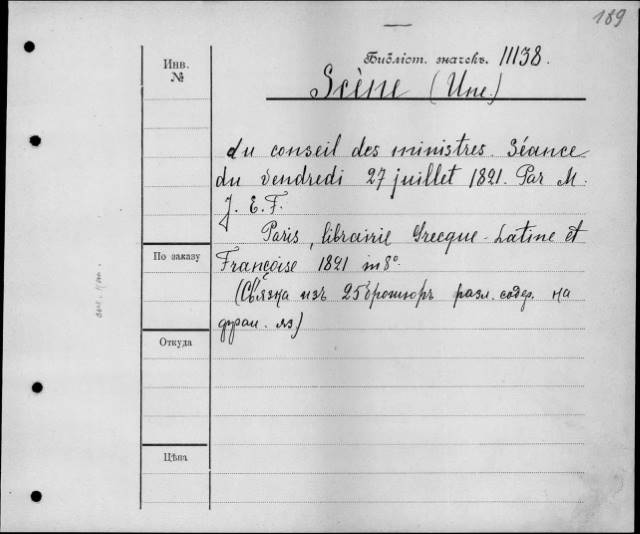 189
Инв.
№
Библіот. значекъ. 11138.
Scène (Une.)
du conseil des ministres. Séance
du vendredi 27 juillet 1821. Par M.
J. E. F.
Paris, librairie Grecque-Latine et
По заказу
Françoise 1821 in 8°.
(Связка изъ 25 брошюръ разл. содер. на
франц. яз)
Откуда
Цѣна